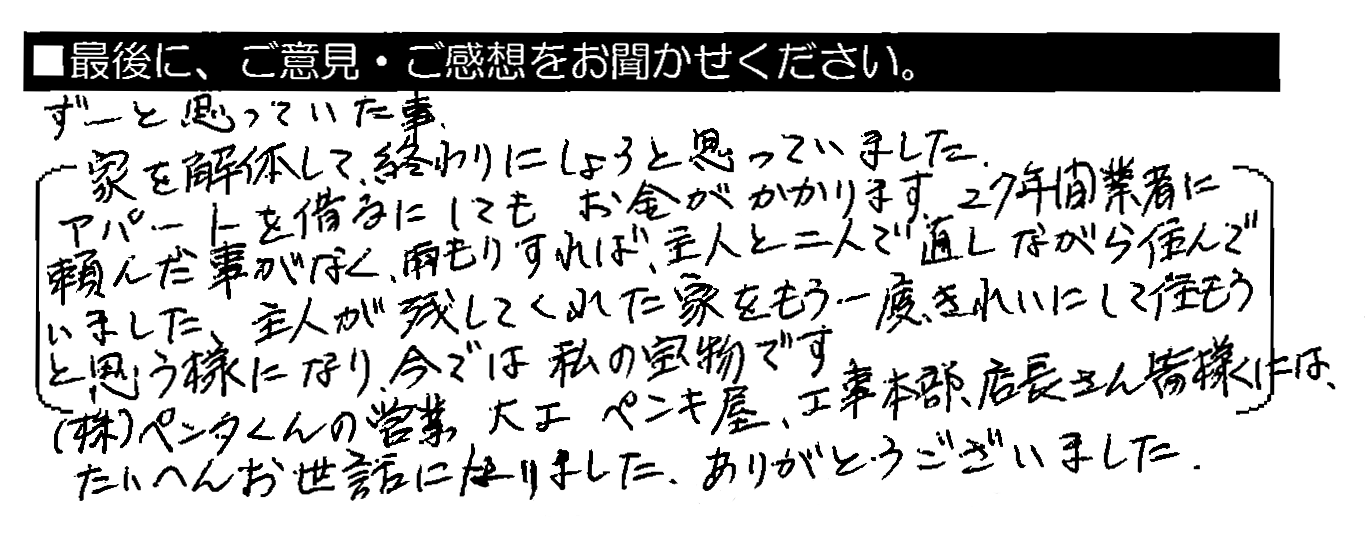 ■最後に、ご意見・ご感想をお聞かせください。
ずーと思っていた事、
家を解体して、終わりにしょうと思っていました。
アパートを借るにしても お金がかかります。27年間業者に
頼んだ事がなく、雨もりすれば、主人と二人で直しながら住んで
いました、主人が残してくれた家をもう一度きれいにして住もう
と思う様になり、今では私の宝物です
(株)ペンタくんの営業 大工 ペンキ屋、工事本部、店長さん皆様には、
たいへんお世話になりました、ありがとうございました。